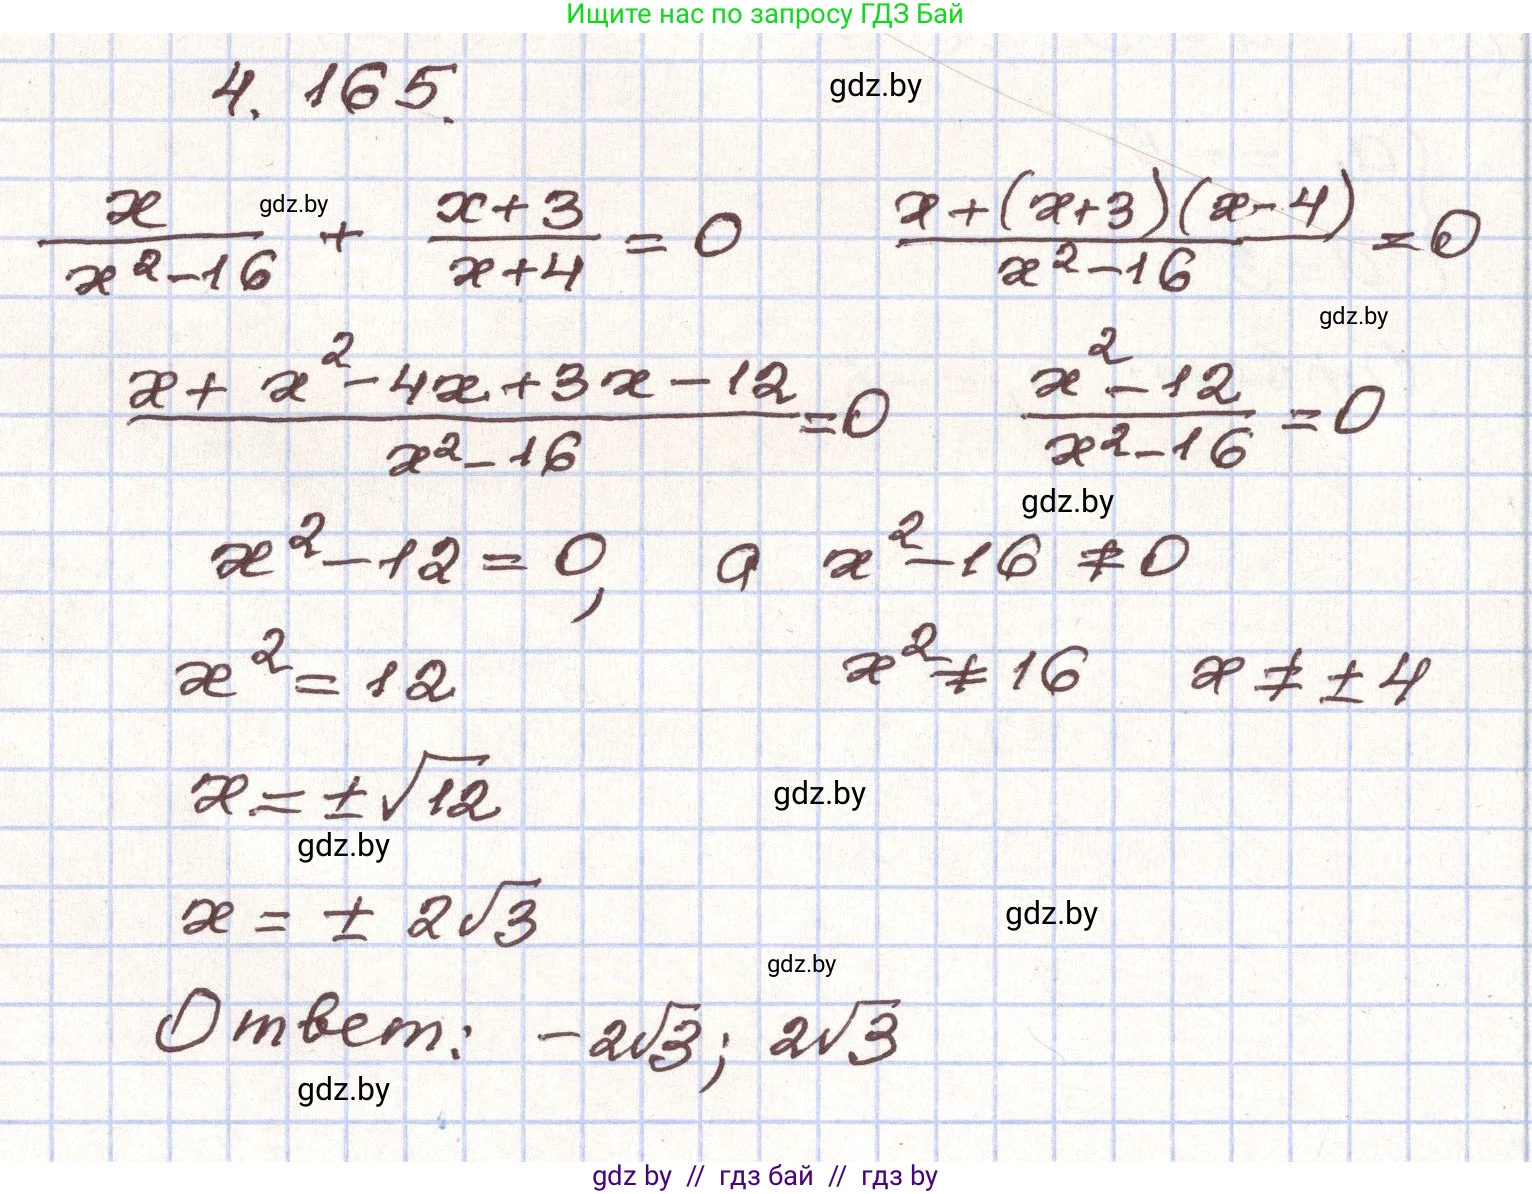 Ищите нас по запросу ГДЗ Бай
4.165.
gdz.by
x/(x² - 16) + (x + 3)/(x + 4) = 0   (x + (x + 3)(x - 4))/(x² - 16) = 0
gdz.by
gdz.by
(x + x² - 4x + 3x - 12)/(x² - 16) = 0   (x² - 12)/(x² - 16) = 0
gdz.by
x² - 12 = 0, а x² - 16 ≠ 0
x² = 12   x² ≠ 16   x ≠ ±4
x = ±√12
gdz.by
gdz.by
x = ± 2√3
gdz.by
gdz.by
Ответ: -2√3; 2√3
gdz.by
gdz by // гдз бай // гдз by